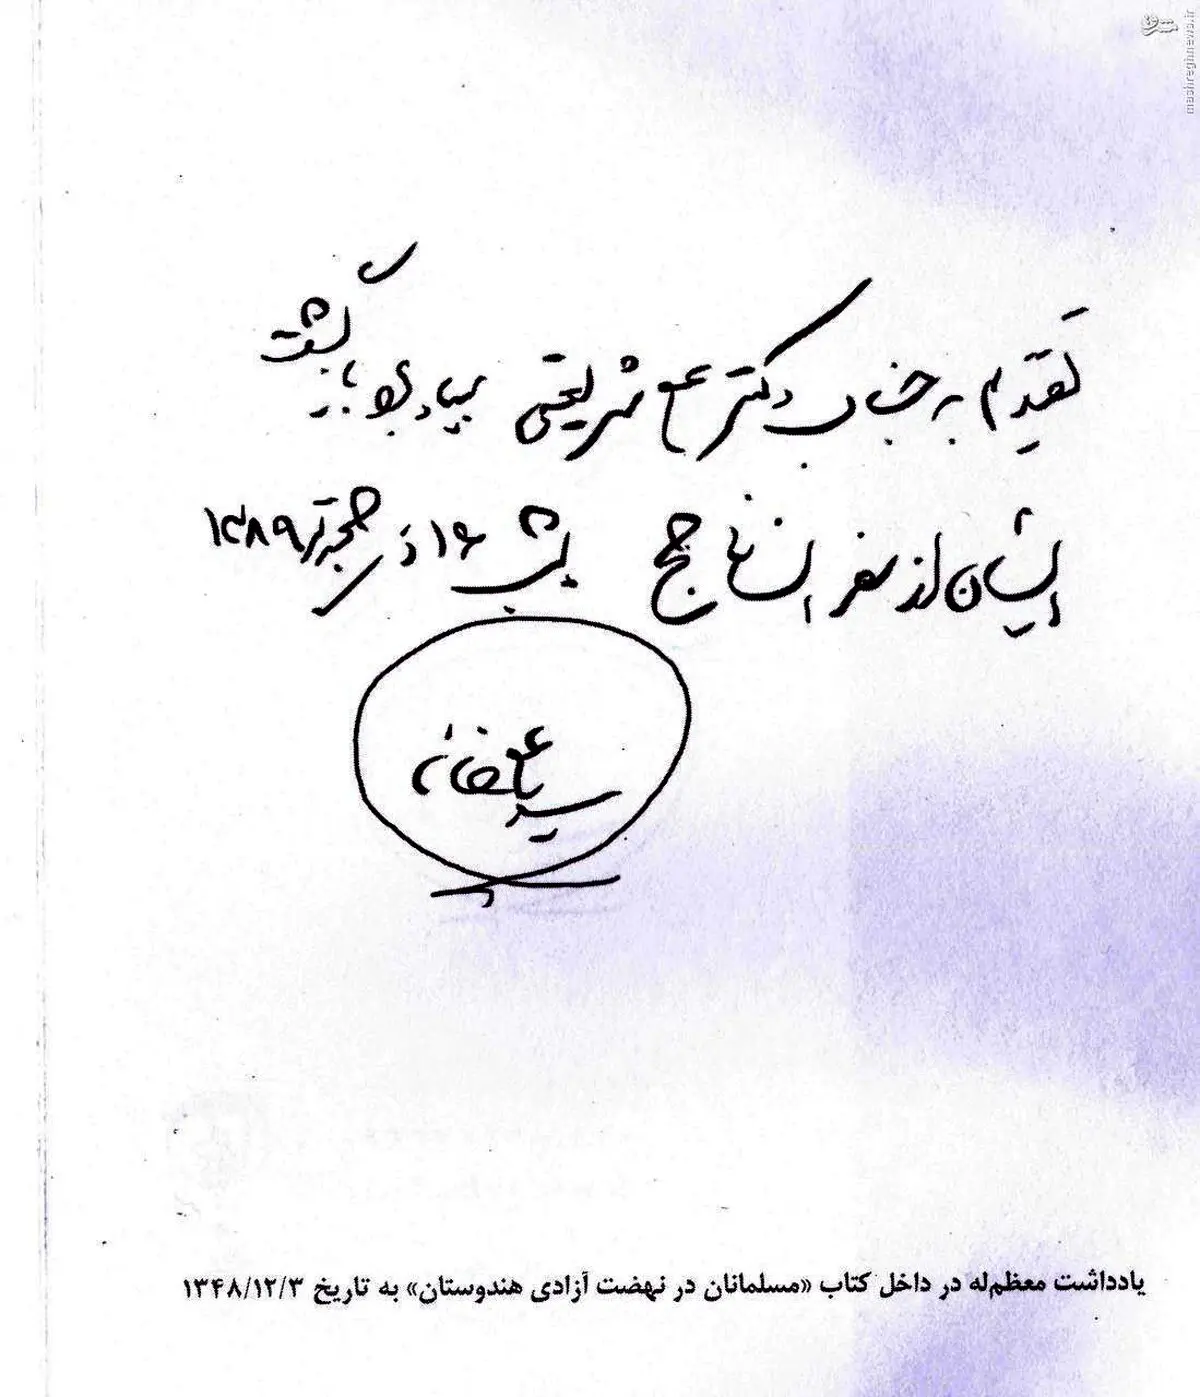 مشرق
mashreghnews.ir
تقدیم به جناب دکتر علی شریعتی بیاد بود بازگشت
ایشان از سفر انسانساز حج شب ۱۶ ذیحجه ۱۳۸۹
سید علی خامنه
یادداشت معظم‌له در داخل کتاب «مسلمانان در نهضت آزادی هندوستان» به تاریخ ۱۳۴۸/۱۲/۳